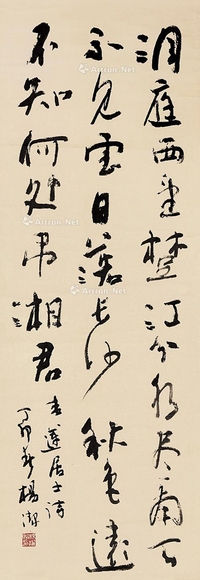 洞庭西望楚江分水尽南天
不见雲日落长沙秋色遠
不知何处吊湘君
青蓮居士诗
丁卯 楊